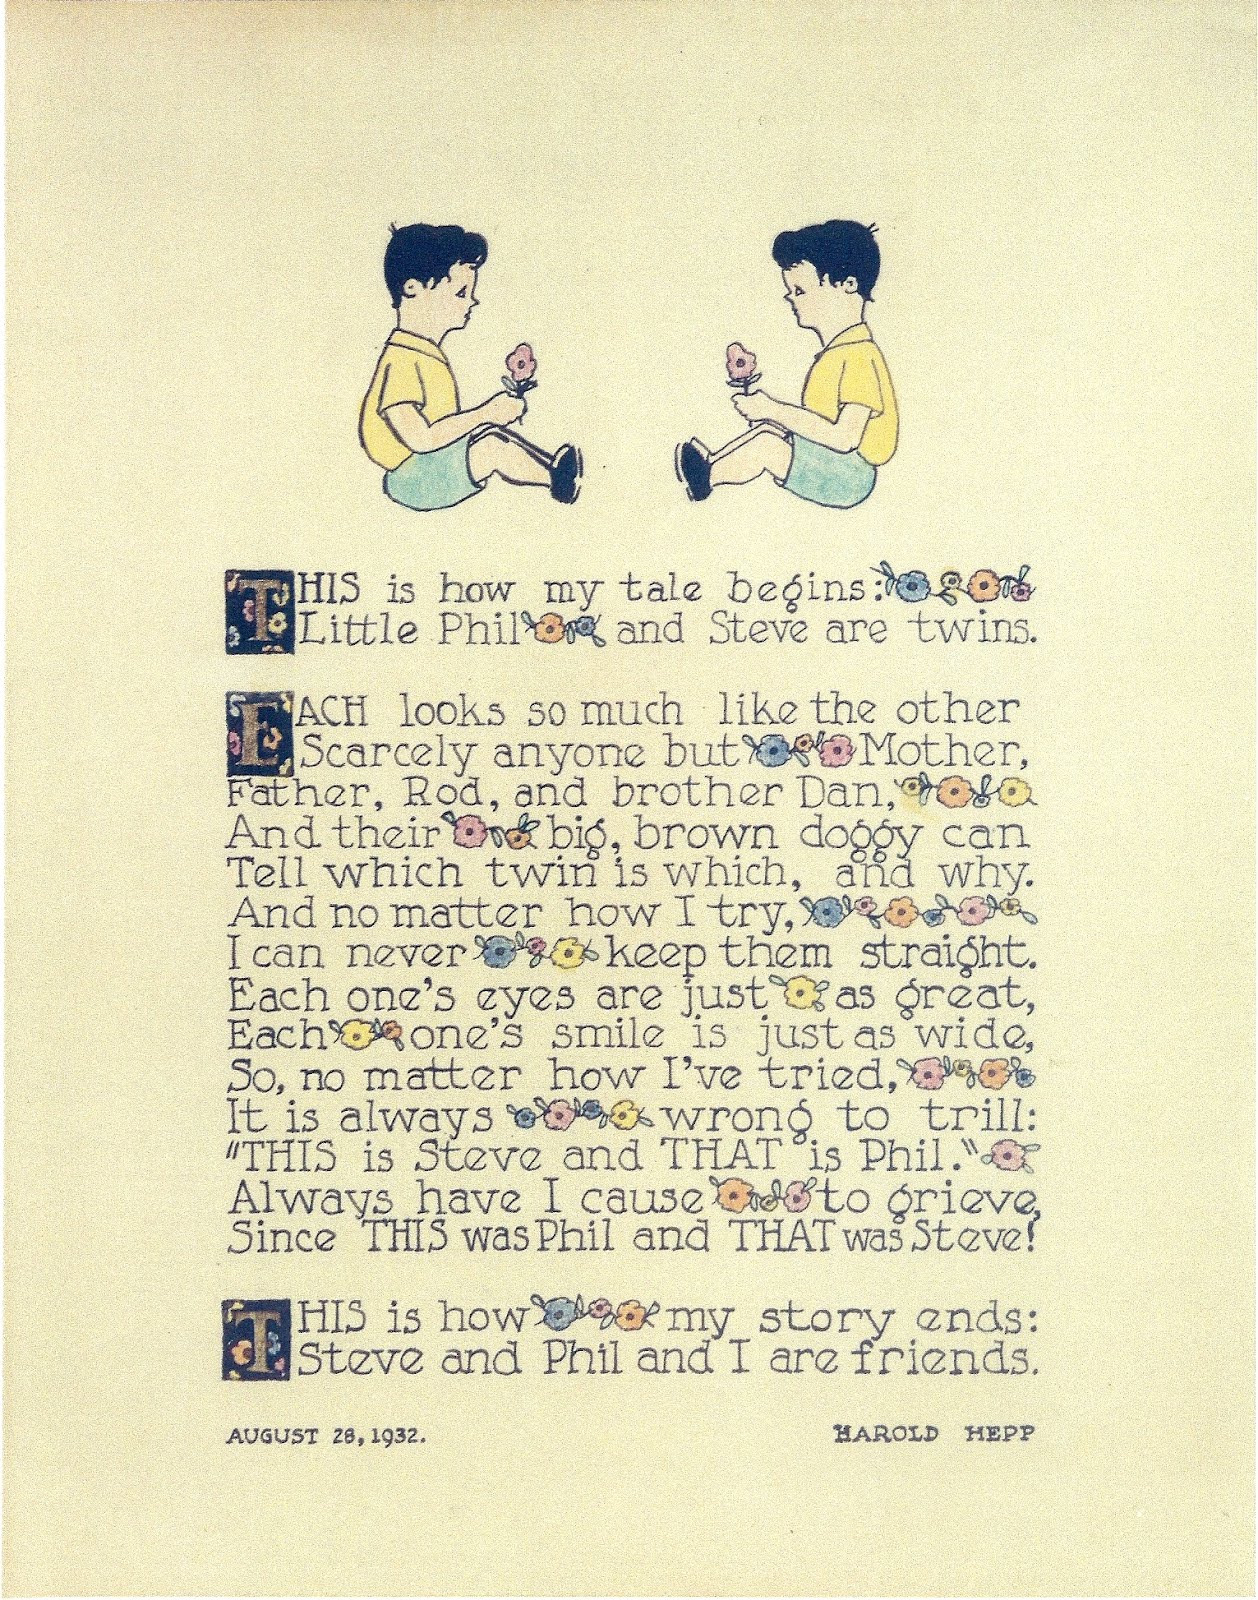 THIS is how my tale begins:
Little Phil and Steve are twins.
EACH looks so much like the other
Scarcely anyone but Mother,
Father, Rod, and brother Dan,
And their big, brown doggy can
Tell which twin is which, and why.
And no matter how I try,
I can never keep them straight.
Each one's eyes are just as great,
Each one's smile is just as wide,
So, no matter how I've tried,
It is always wrong to trill:
"THIS is Steve and THAT is Phil."
Always have I cause to grieve,
Since THIS was Phil and THAT was Steve!
THIS is how my story ends:
Steve and Phil and I are friends.
AUGUST 28, 1932.
HAROLD HEPP